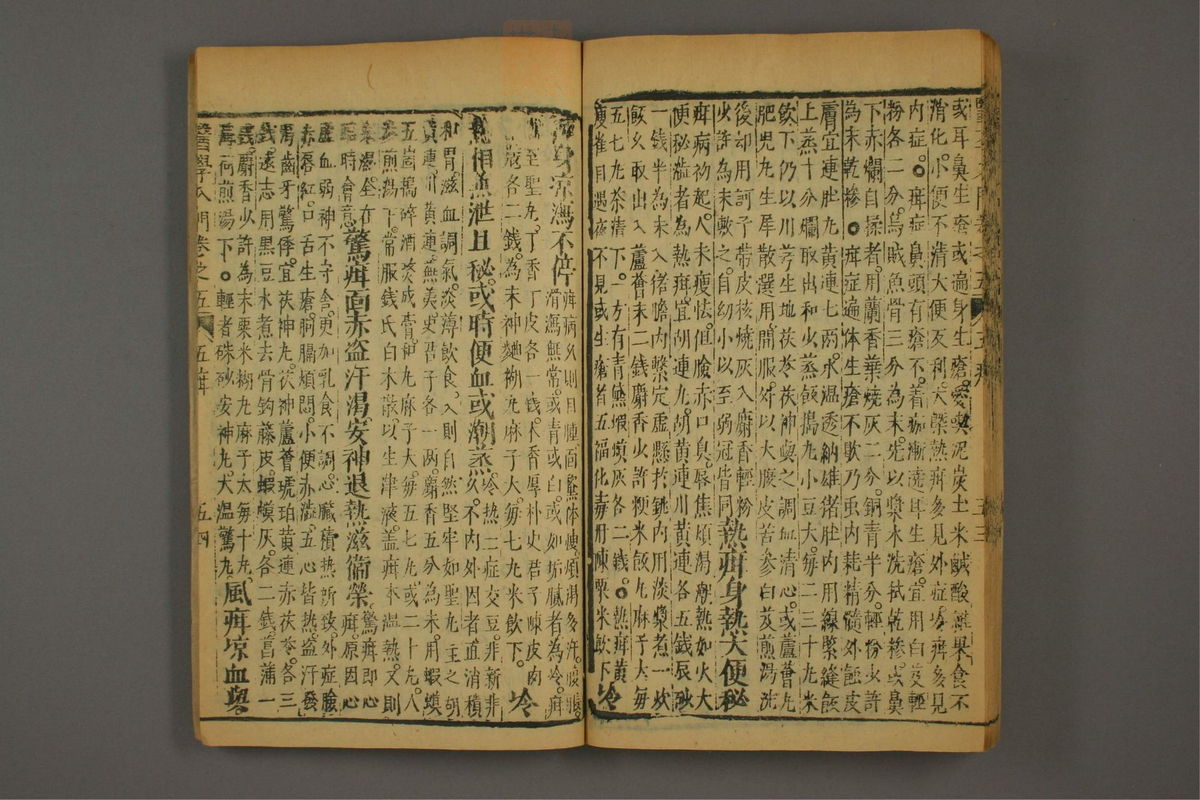 或耳鼻生瘡或遍身生瘡愛喫泥炭土米鹹酸雜果食不
消化小便不清大便反利大槩熱疳多見外症冷疳多見
內症。疳症鼻頭有瘡不著痂漸遶耳生瘡用白芨輕
粉各二分烏賊魚骨三分為末先以漿水洗拭乾摻或鼻
下赤爛自揉者用蘭香葉燒灰二分銅青半分輕粉少許
為末乾摻。疳症遍体生瘡不歇乃虫內耗精髓外蝕皮
膚宜連肚丸黃連七兩水溫透納雄猪肚內用線緊縫飯
上蒸十分爛取出和少蒸飯搗丸小豆大每二三十丸米
飲下仍以川芎生地茯苓茯神煎之調血清心或蘆薈丸
肥兒丸生犀散選用間服外以大腹皮苦参白芨煎湯洗
後却用訶子帶皮核燒灰入麝香輕粉熱疳身熱大便秘
少許為末敷之自幼小以至弱冠皆同
疳病初起人未瘦怯但臉赤口臭唇焦煩渴潮熱如火大
便秘澁者為熱疳宜胡連丸胡黃連川黃連各五錢辰砂
一錢半為末入猪膽內繫定虛懸於銚內用淡漿煮一炊
飯久取出入蘆薈末二錢麝香少許粳米飯丸麻子大每
五七丸茶清下。一方有青黛蝦蟆灰各二錢。熱疳黃
瘦雀目遇夜不見或生瘡者五福化毒丹陳粟米飲下冷
疳身凉瀉不停疳病久則目腫面黧体瘦煩渴多汗腹脹
滑瀉無常或青或白或如垢膩者為冷疳
至聖丸丁香丁皮各一錢木香厚朴史君子陳皮肉
蔻各二錢為末神麯糊丸麻子大每七丸米飲下。冷
熱相兼泄且秘或時便血或潮蒸冷熱二症交互非新非
久不內外因者宜消積
和胃滋血調氣淡薄飲食入則自然堅牢如聖丸主之胡
黃連川黃連蕪荑史君子各一兩麝香五分為末用蝦蟆
五箇搗碎酒熬成膏和丸麻子大每五七丸或二十丸人
參煎湯下常服錢氏白木散以生津液蓋疳本温熱又則
臨時會意驚疳面赤盜汗渴安神退熱滋衛榮驚疳即心
疳原因心
虛血弱神不守舍更加乳食不調心臟積熱所致外症臉
赤唇紅口舌生瘡胸膈煩悶小便赤澁五心皆熱盜汗發
渴齒牙驚悸宜茯神丸茯神蘆薈琥珀黃連赤茯苓各三
錢遠志用黑豆水煮去骨鈎藤皮蝦蟆灰各二錢菖蒲一
錢麝香少許為末粟米糊丸麻子大每十丸
薄荷煎湯下。輕者硃砂安神丸大温驚丸風疳凉血與
醫學入門卷之五
五疳
五四